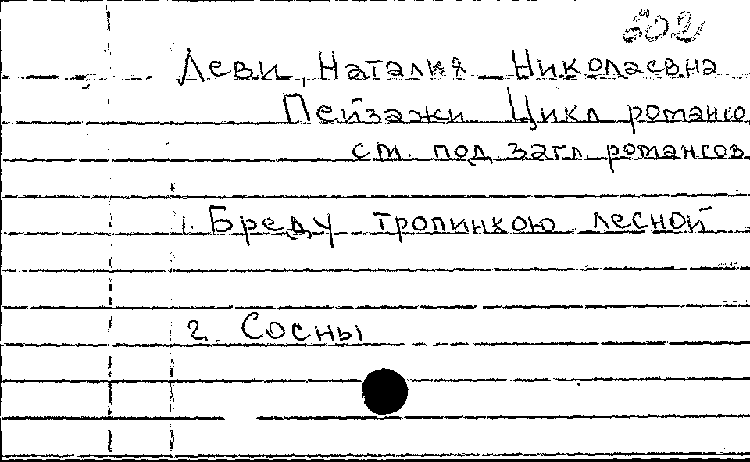 602
Леви, Наталия Николаевна
Пейзажи Цикл романсо
см. под загл романсов
1. Бреду тропинкою лесной
2. Сосны